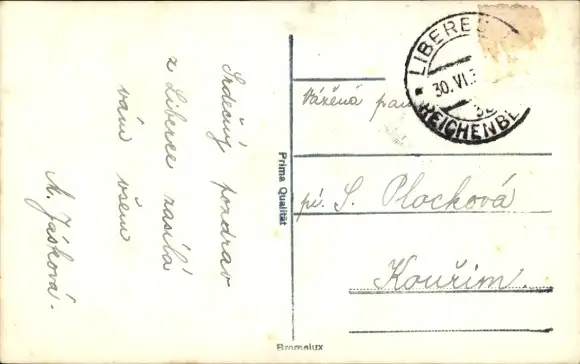 Srdečný pozdrav
z Liberce zasílá
vám všem
M. Jášková.
Prima Qualität
LIBEREC
30. VI. 3
REICHENBE
Vážená paní
pí. S. Plocková
Kouřim.
Bromolux